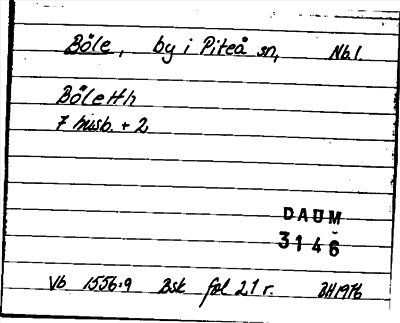 Böle, by i Piteå sn, Nb.l.
Böleth
7 husb. + 2
DAUM
3146
Vb 1556:9 Bsk fol 21 r. BH1976